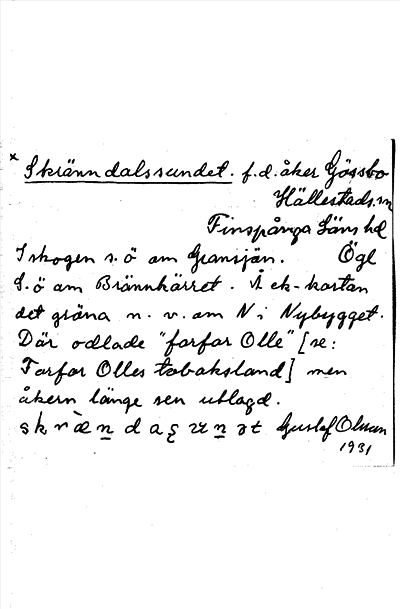 x Skränndalssundet. f.d. åker Gössbo
Hällestads sn
Finspånga läns hd
I skogen s. ö om Gransjön. Ögl
S. ö om Brännkärret. Å ek-kartan
det gröna n. v. om N i Nybygget.
Där odlade "farfar Olle" [se:
Farfar Olles tobaksland] men
åkern länge sen utlagd.
skræ̀n da sunət Gustaf Olsson
1931